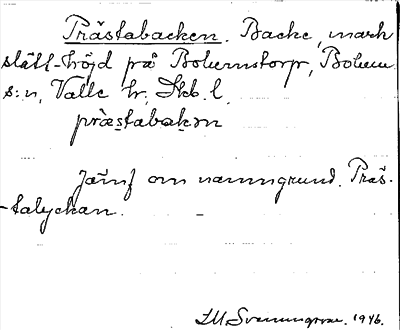 Prästabacken. Backe, mark
slätt-höjd på Bolumstorp, Bolum
s:n, Valle hr, Skb. l.
præstabakən
Jämf om namngrund. Präs-
-talyckan.
1946.